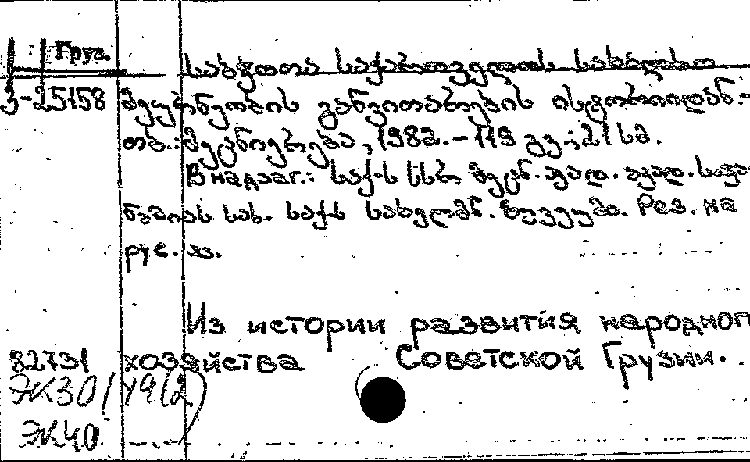 Груз.
საბჭოთა საქართველოს სახალხო
3-25158 მეურნეობის განვითარების ისტორიიდან.-
თბ.: მეცნიერება, 1982. - 119 გვ.; 21 სმ.
В надзаг.: საქ-ს სსრ მეცნ. აკად.
სახ. საქ-ს სახელმწ. მუზეუმი. Рез. на
рус. яз.
Из истории развития народног
82731 хозяйства Советской Грузии.
ЭК30/49(2)
ЭК40